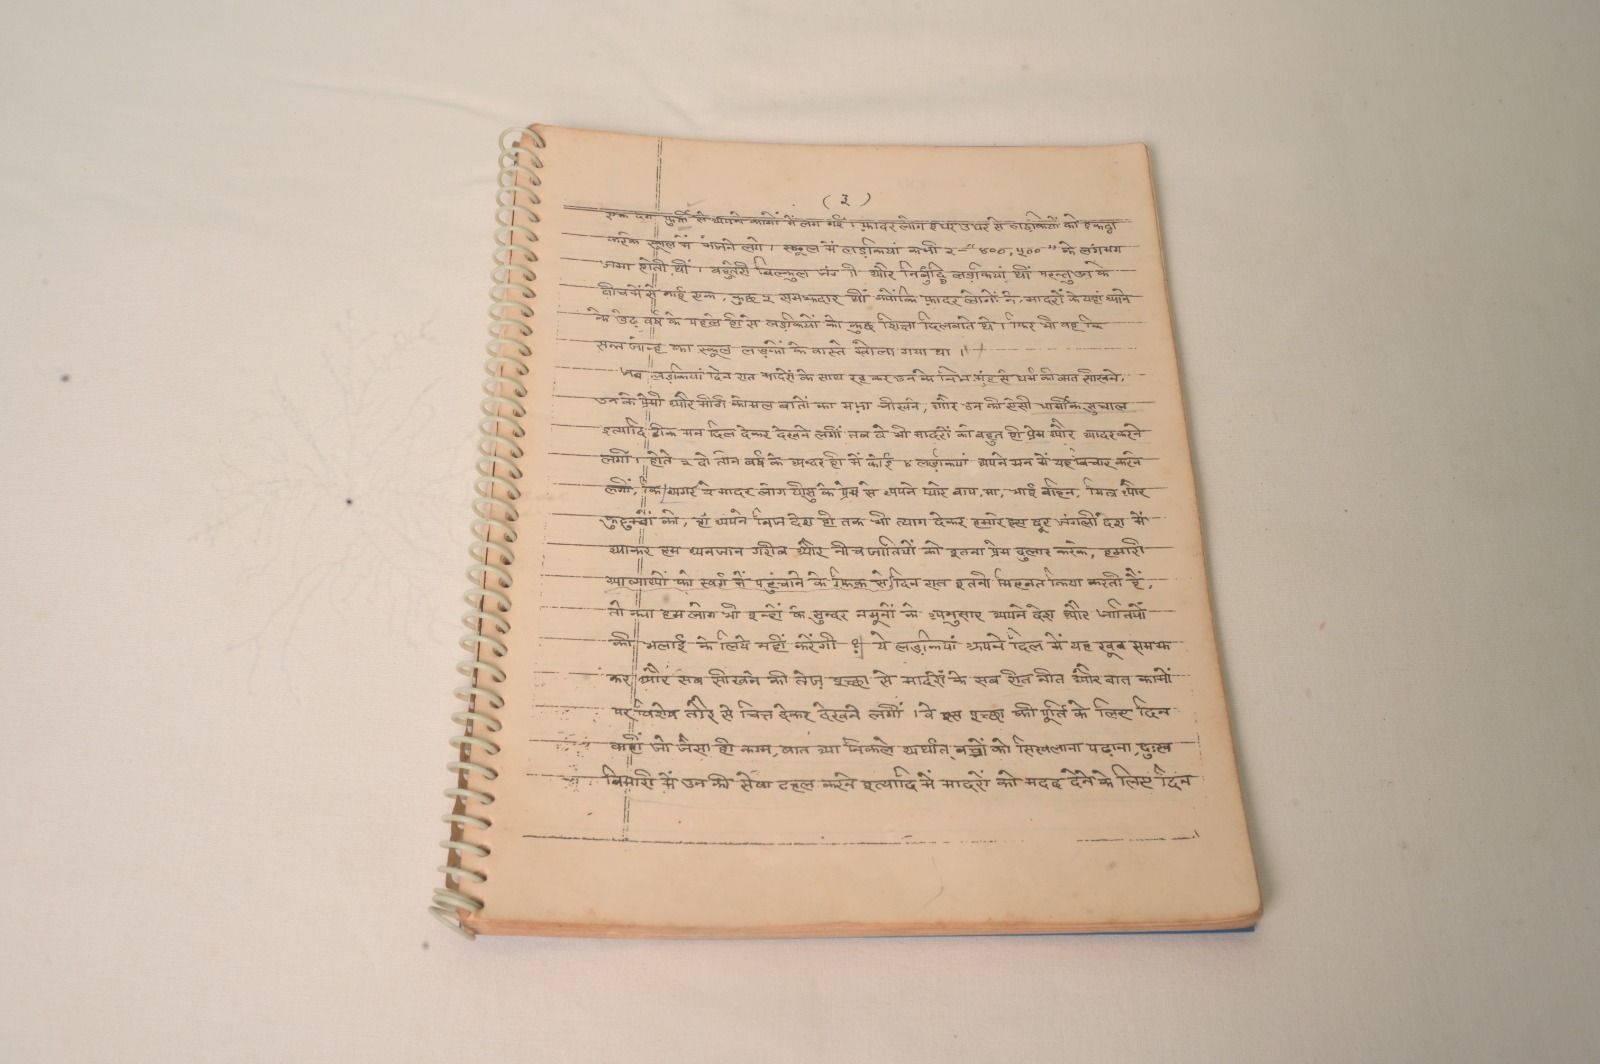 (३)
एक दम फुर्ती से अपने कामों में लग गईं । फ़ादर लोग इधर उधर से लड़कियों को इकट्ठा
करके स्कूल में भेजने लगे । स्कूल में लड़कियां कभी २ "४००, ५००" के लगभग
जमा होती थीं । बहुतेरी बिल्कुल जंगली और निर्बुद्धि लड़कियां थीं परन्तु उन के
बीच में से कई एक, कुछ २ समझदार थीं क्योंकि फ़ादर लोगों ने, मादरों के यहां आने
के डेढ़ वर्ष के पहले ही से लड़कियों को कुछ शिक्षा दिलवाते थे । फिर भी वह कि
सन्त जान्ह का स्कूल लड़कों के वास्ते खोला गया था ।
जब लड़कियां दिन रात मादरों के साथ रह कर उन के निज मुंह से धर्म की बात सीखने,
उन के प्रेमी और मीठी कोमल बातों का मज़ा चीखने, और उन की ऐसी धार्मीक सुचाल
इत्यादि ठीक मन दिल देकर देखने लगीं तब वे भी मादरों को बहुत ही प्रेम और आदर करने
लगीं । होते २ दो तीन वर्ष के अन्दर ही में कोई ४ लड़कियां अपने मन में यह विचार करने
लगीं, कि अगर ये मादर लोग यीसु के प्रेम से अपने प्यारे बाप, मा, भाई बहिन, मित्र और
कुटुम्बों को, हाँ अपने निज देश ही तक भी त्याग देकर हमारे इस दूर जंगली देश में
आकर हम अनजान गरीब और नीच जातियों को इतना प्रेम दुलार करके, हमारी
आत्माओं को स्वर्ग में पहुंचाने के फ़िक्र से दिन रात इतनी मिहनत किया करती हैं,
तो क्या हम लोग भी इन्हीं के सुन्दर नमूनों के अनुसार अपने देश और जातियों
की भलाई के लिये नहीं करेंगी ? ये लड़कियां अपने दिल में यह खूब समझ
कर और सब सीखने की तेज़ इच्छा से मादरों के सब रीत नीत और बात कामों
पर विशेष तौर से चित्त देकर देखने लगीं । वे इस इच्छा की पूर्ति के लिए दिन
कहीं जो जैसा ही काम, बात आ निकले अर्थात् बच्चों को सिखलाना पढ़ाना, दुःख
बिमारी में उन की सेवा टहल करने इत्यादि में मादरों को मदद देने के लिए दिन